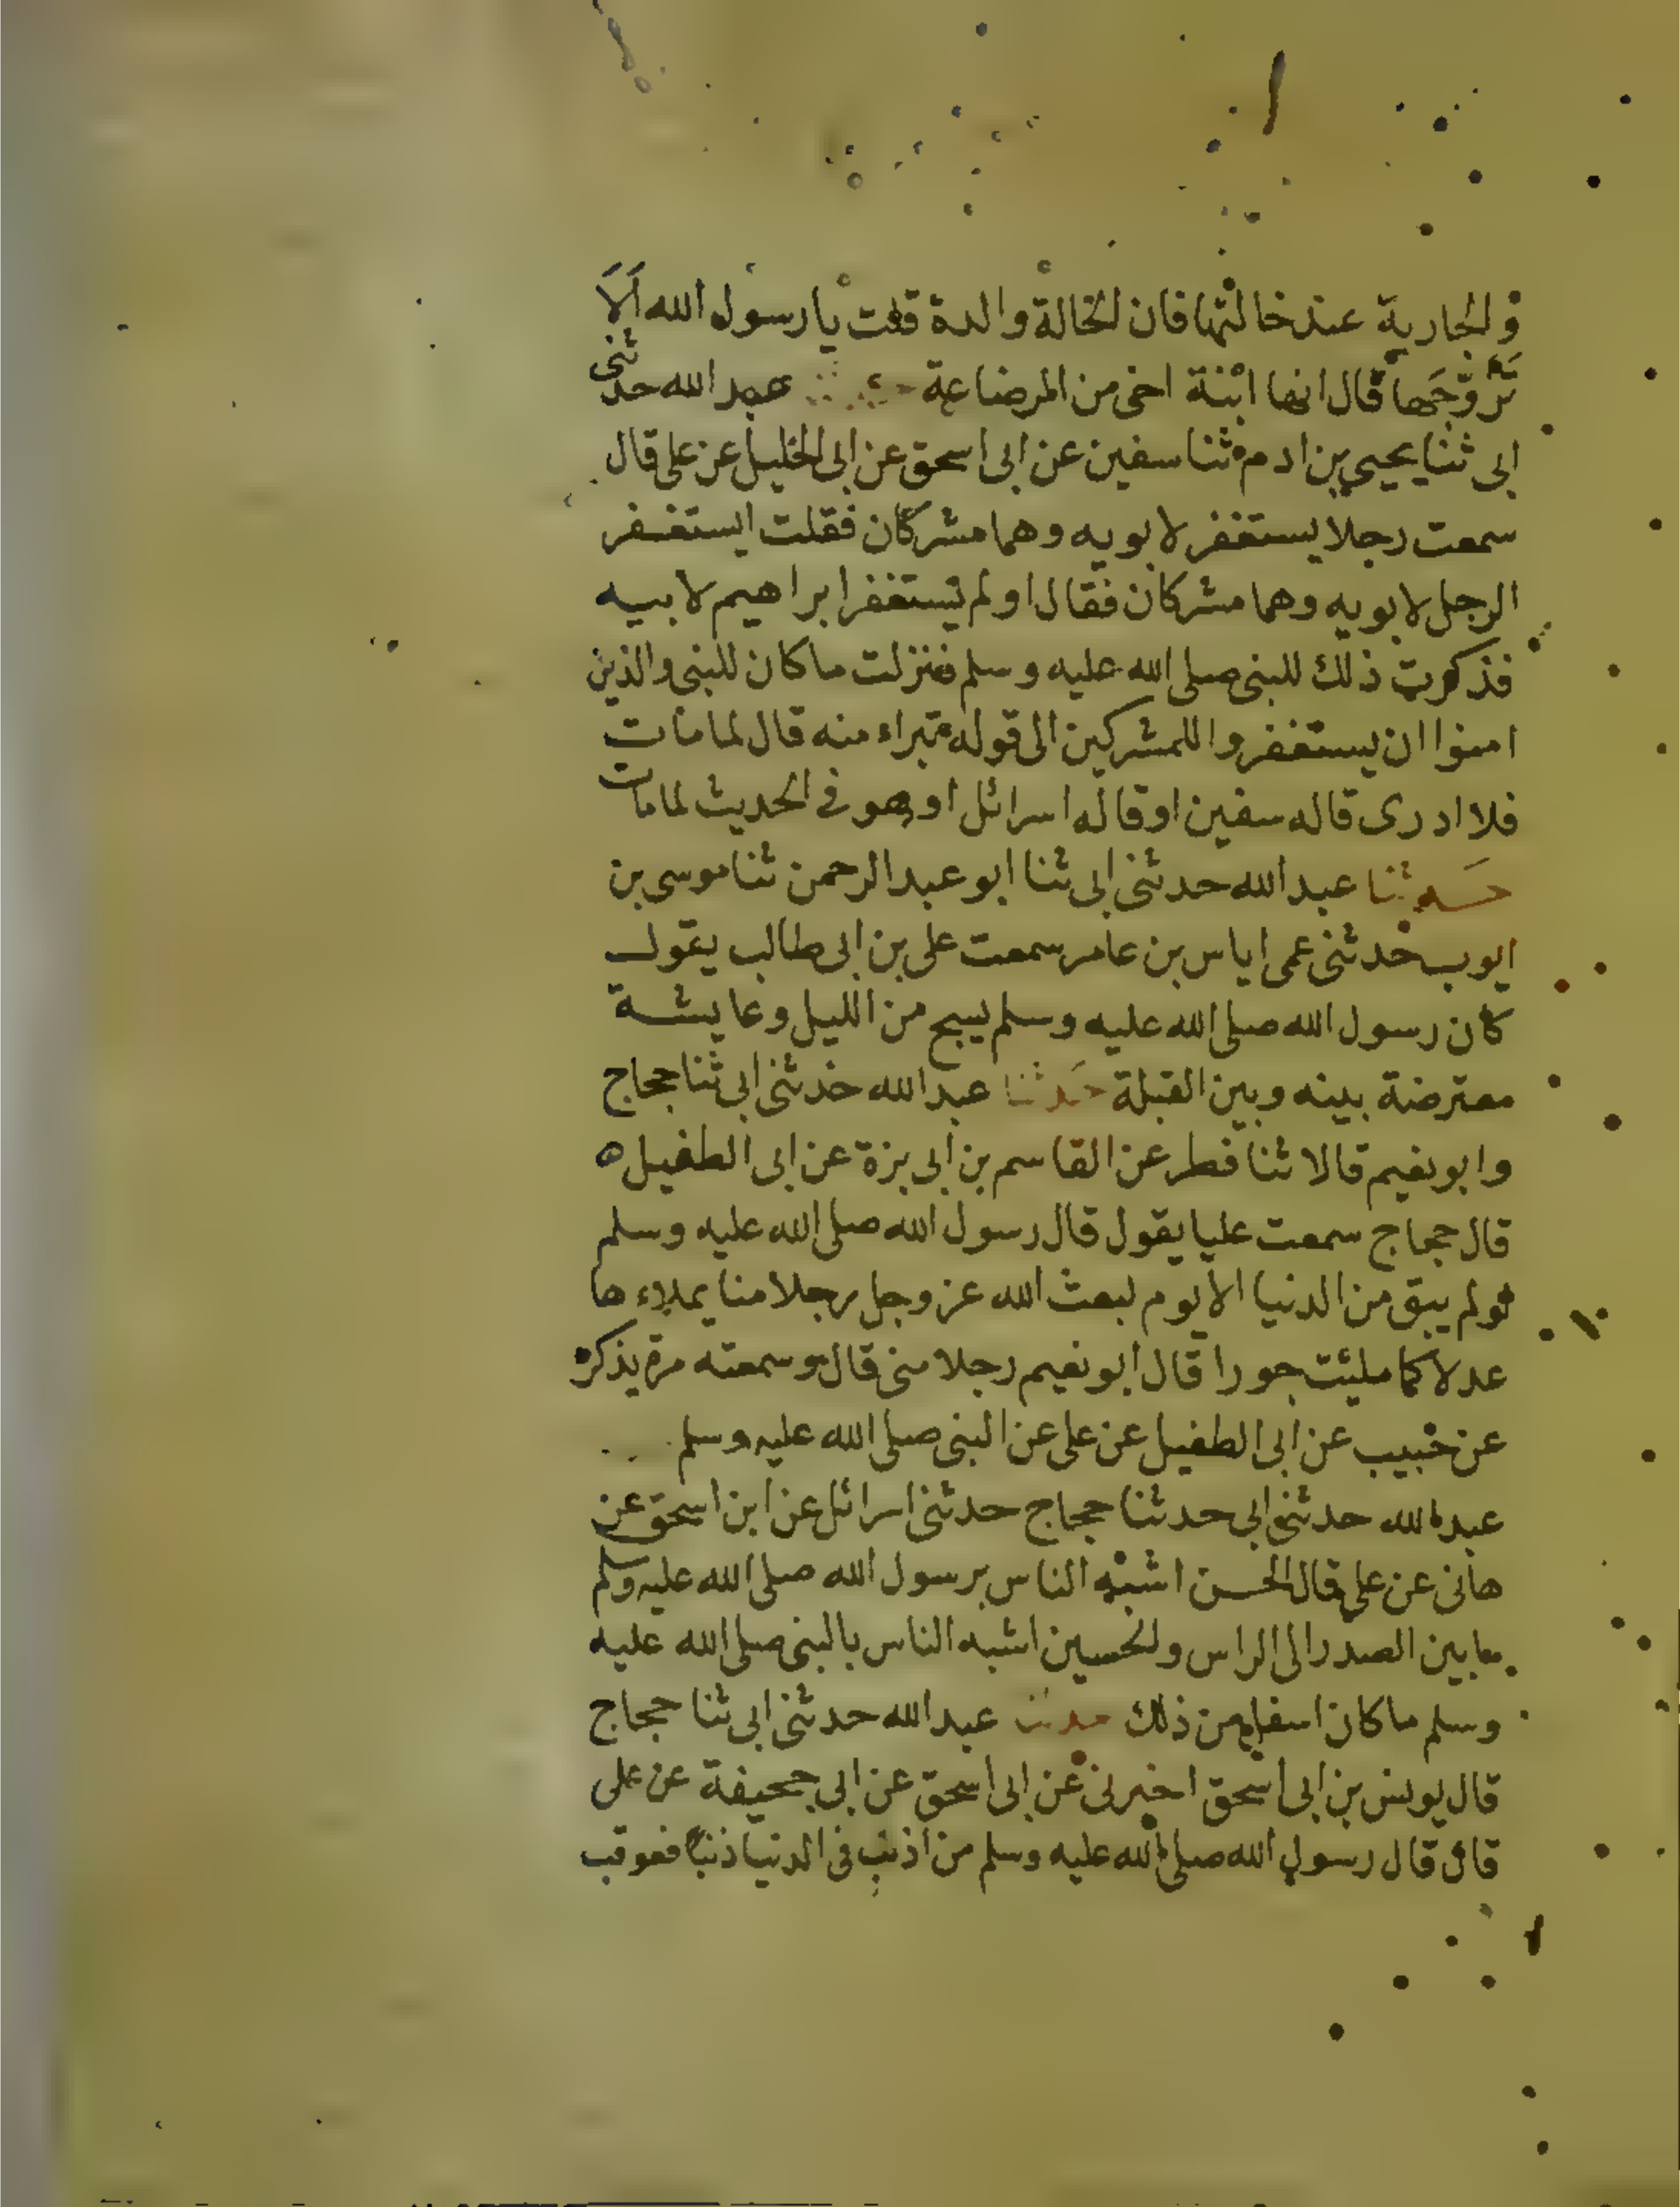 والجارية عند خالتها فان الخالة والدة قلت يا رسول الله الا
تزوجها قال انها ابنة اخى من الرضاعة عبد الله حدثنى
ابى ثنا يحيى بن ادم ثنا سفين عن ابى اسحق عن ابى الخليل عن على قال
سمعت رجلا يستغفر لابويه وهما مشركان فقلت ايستغفر
الرجل لابويه وهما مشركان فقال اولم يستغفر ابراهيم لابيه
فذكرت ذلك للنبى صلى الله عليه وسلم فنزلت ما كان للنبى والذين
امنوا ان يستغفروا للمشركين الى قوله تبراء منه قال لما مات
فلا ادرى قاله سفين او قاله اسرائل او هو فى الحديث لما مات
حدثنا عبد الله حدثنى ابى ثنا ابو عبد الرحمن ثنا موسى بن
ايوب حدثنى عمى اياس بن عامر سمعت على بن ابى طالب يقول
كان رسول الله صلى الله عليه وسلم يسبح من الليل وعايشة
معترضة بينه وبين القبلة حدثنا عبد الله حدثنى ابى ثنا حجاج
وابو نعيم قالا ثنا فطر عن القاسم بن ابى بزة عن ابى الطفيل ه
قال حجاج سمعت عليا يقول قال رسول الله صلى الله عليه وسلم
لو لم يبق من الدنيا الا يوم لبعث الله عز وجل رجلا منا يملاءها
عدلا كما ملئت جورا قال ابو نعيم رجلا منى قال وسمعته مرة يذكره
عن حبيب عن ابى الطفيل عن على عن النبى صلى الله عليه وسلم
عبد الله حدثنى ابى حدثنا حجاج حدثنى اسرائل عن ابن اسحق عن
هانى عن على قال الحسن اشبه الناس برسول الله صلى الله عليه وسلم
ما بين الصدر الى الراس والحسين اشبه الناس بالنبى صلى الله عليه
وسلم ما كان اسفل من ذلك حدثنا عبد الله حدثنى ابى ثنا حجاج
قال يونس بن ابى اسحق اخبرنى عن ابى اسحق عن ابى جحيفة عن على
قال قال رسول الله صلى الله عليه وسلم من اذنب فى الدنيا ذنبا فعوقب